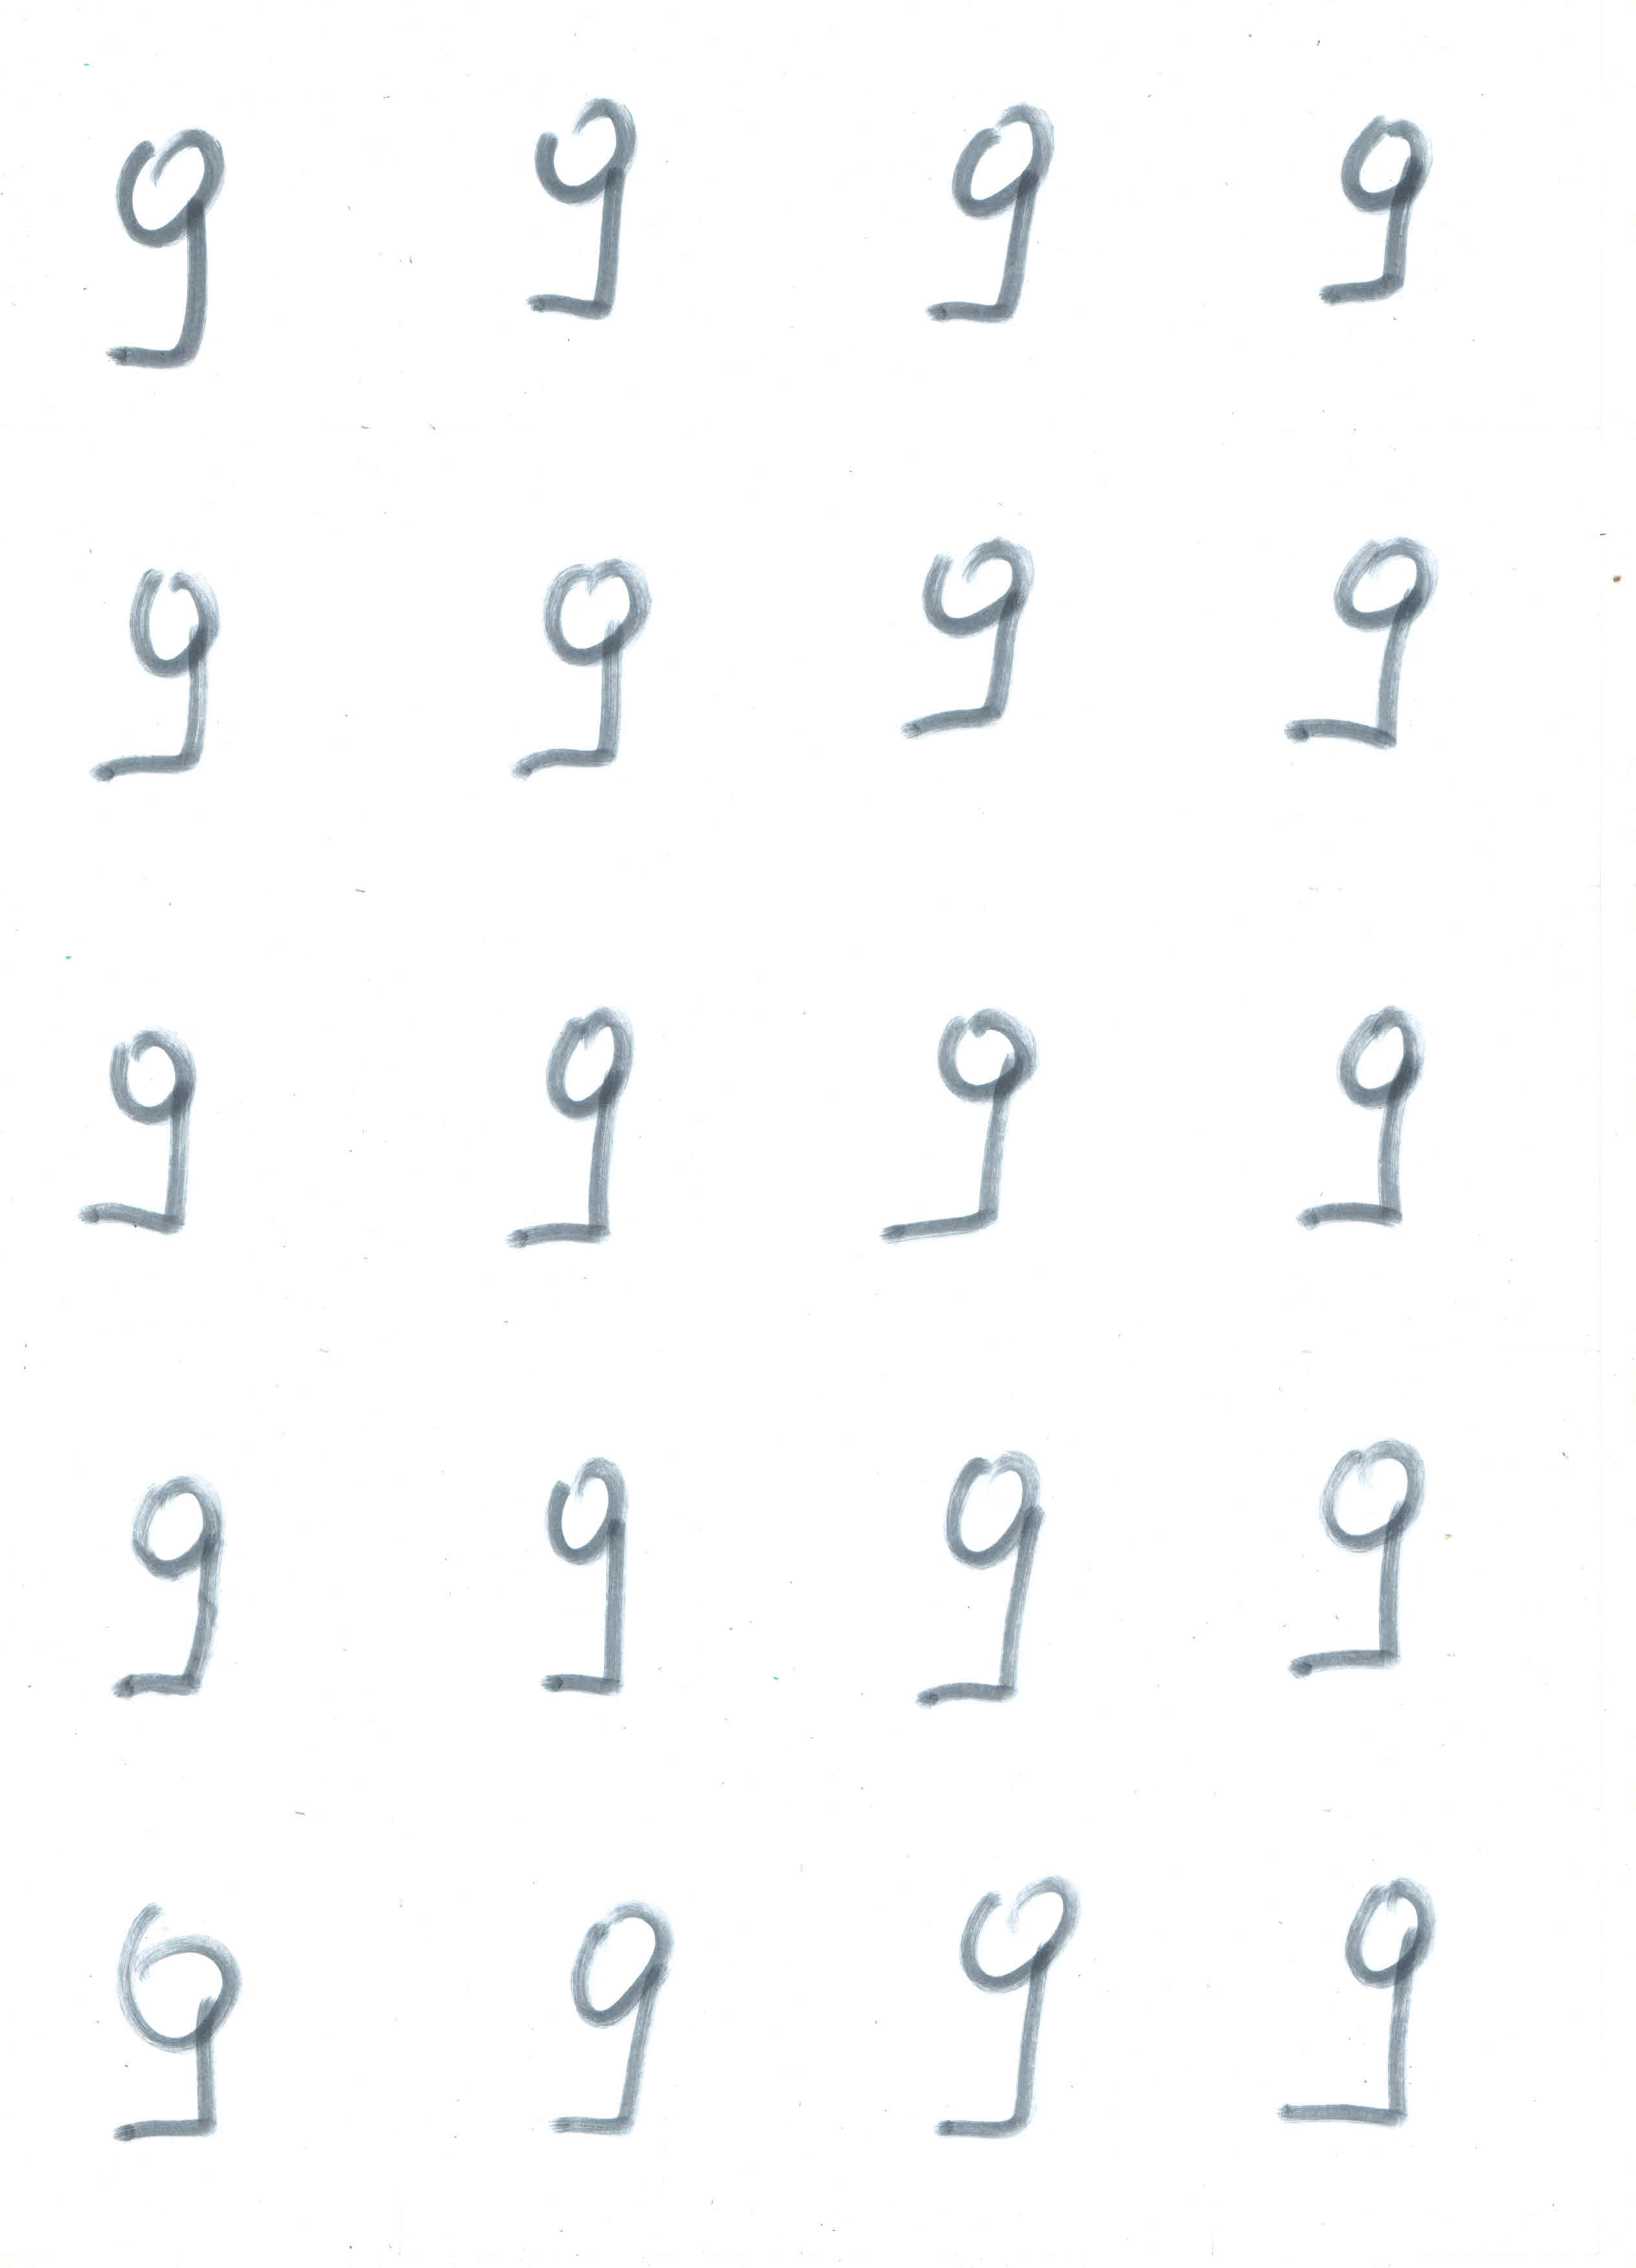 9 9 9 9
9 9 9 9
9 9 9 9
9 9 9 9
9 9 9 9